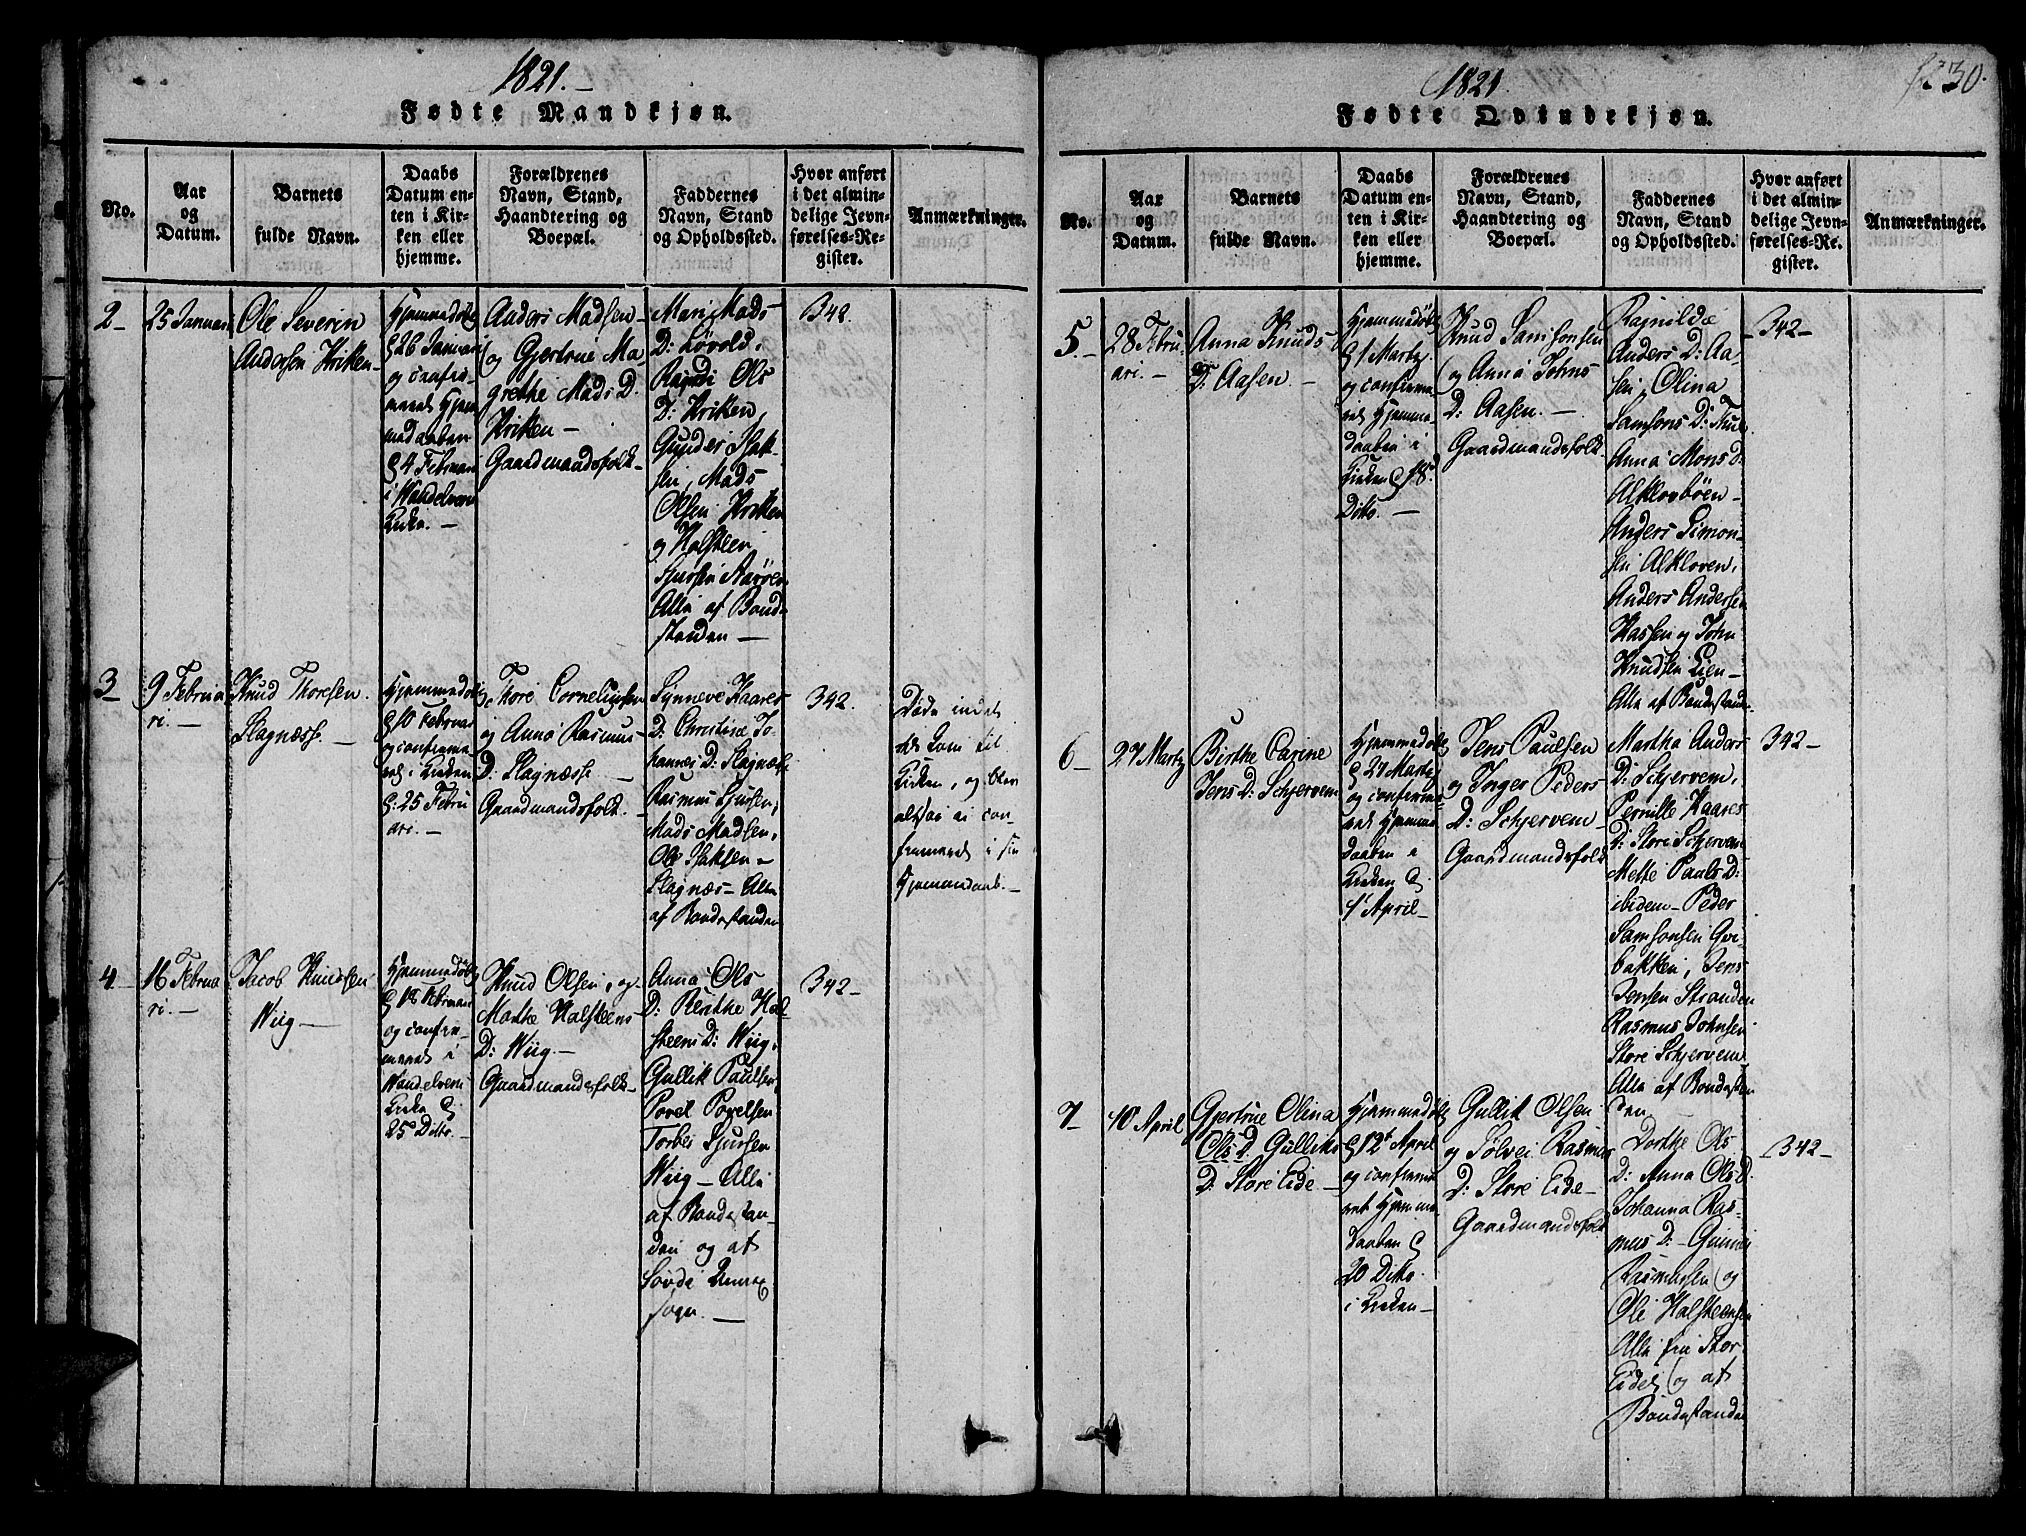 1821.
Fødte Mandkjøn.
No.
Aar
og
Datum.
Barnets
fulde Navn.
Daabs
Datum en-
ten i Kir-
ken eller
hjemme.
Forældrenes
Navn, Stand,
Haandtering og
Boepæl.
Faddernes
Navn, Stand
og Opholdssted.
Hvor anført
i det almin-
delige Jevn-
førelses-Re-
gister.
Anmærkninger.
2
25 Januari
Ole Severin
Andersen
Hjemmedøbt
26 Januari
og confir-
meret Hjem
medaaben
4 Februari
i Wandelvens
Kirke.
Anders Madsen
og Gjertrue Ma
grethe Mads D.
Gaardmandsfolk
Mari Mads
D: Løvold,
Ragndi Ols
D:
Gunder Isak-
sen, Mads
Olsen
og Halsteen
Sjursen Aarøen
Alle af Bonde
standen
342.
3
9 Februa
ri.
Knud Thoresen
Slagnæss.
Hjemmedøbt
10 Februar
og confirme
ret i Kirken
25 Febru
ari.
Thore Corneliussen
og Anna Rasmus
D: Slagnæss
Gaardmandsfolk.
Synneve Kaares
D: Christine Jo-
hannes D: Slagnæss
Rasmus Sjursen,
Mads Madsen,
Ole Isaksen
Slagnæs Alle
af Bondestanden
342.
Døde indet
det kom til
Kirken, og blev
altsaa ei con-
firmeret i sin
Hjemmedaab.
4
16 Februa
ri.
Jacob Knudsen
Wiig
Hjemmedøbt
18 Februari
og confir-
meret i
Wandelvens
Kirke
25 Ditto.
Knud Olsen, og
Marthe Halsteens
D: Wiig.
Gaardmandsfolk
Anna Ols
D: Berthe Hal
steens D: Wiig,
Gullik Paulsen,
Povel Povelsen
Torbei Sjursen
Wiig Alle
af Bondestan-
den og af
Søvde
sogn.
342
1821.
Fødte Qvindekjøn.
30.
No.
Aar
og
Datum.
Barnets
fulde Navn.
Daabs
Datum en-
ten i Kir-
ken eller
hjemme.
Forældrenes
Navn, Stand,
Haandtering og
Boepæl.
Faddernes
Navn, Stand
og Opholdssted.
Hvor anført
i det almin-
delige Jevn-
førelses-Re-
gister.
Anmærkninger.
5
28 Febru-
ari.
Anna Knuds
D: Aasen.
Hjemmedøbt
1 Marty.
og confirme
ret Hjemme-
daaben i
Kirken 18d
Ditto.
Knud Samsonsen
og Anna Johns
D: Aasen.
Gaardmandsfolk
Ragnilde
Anders D: Aa-
sen, Olina
Samsons D:
Anna Mons D:
Aklovbøen
Anders Simon-
sen Alkloven,
Anders Andersen
Hassen og John
Knudsen Lien
Alle af Bondestanden
342
6
27 Marty
Birthe Carine
Jens D: Schjervem
Hjemmedøbt
27 Marty
og confirme-
ret Hjemme
daaben i
Kirken
1 April
Jens Paulsen
og Inger Peders
D: Schjervem
Gaardmandsfolk
Martha Anders
D: Schjervem,
Pernille Kaares
D: Store Schjervem
Mette Pauls D:
ibidem Peder
Samsonsen Gri-
bakken, Jens
Jensen Stranden
Rasmus Johnsen
Store Schjervem
Alle af Bondestan
den
342
7
10 April
Gjertrue Olina
Ols D. Gulliks
D. Store Eide
Hjemmedøbt
12t April
og confirme
ret Hjemme
daaben
20 Ditto
i Kirken
Gullik Olsen
og Sølvei Rasmus
D: Store Eide
Gaardmandsfolk
Dorthe Ols
D: Anna Ols D.
Johanna Ras-
mus D: Gunner
Rasmussen og
Ole Halsteensen
Alle fra Stor
Eidet og af
Bondestanden
342